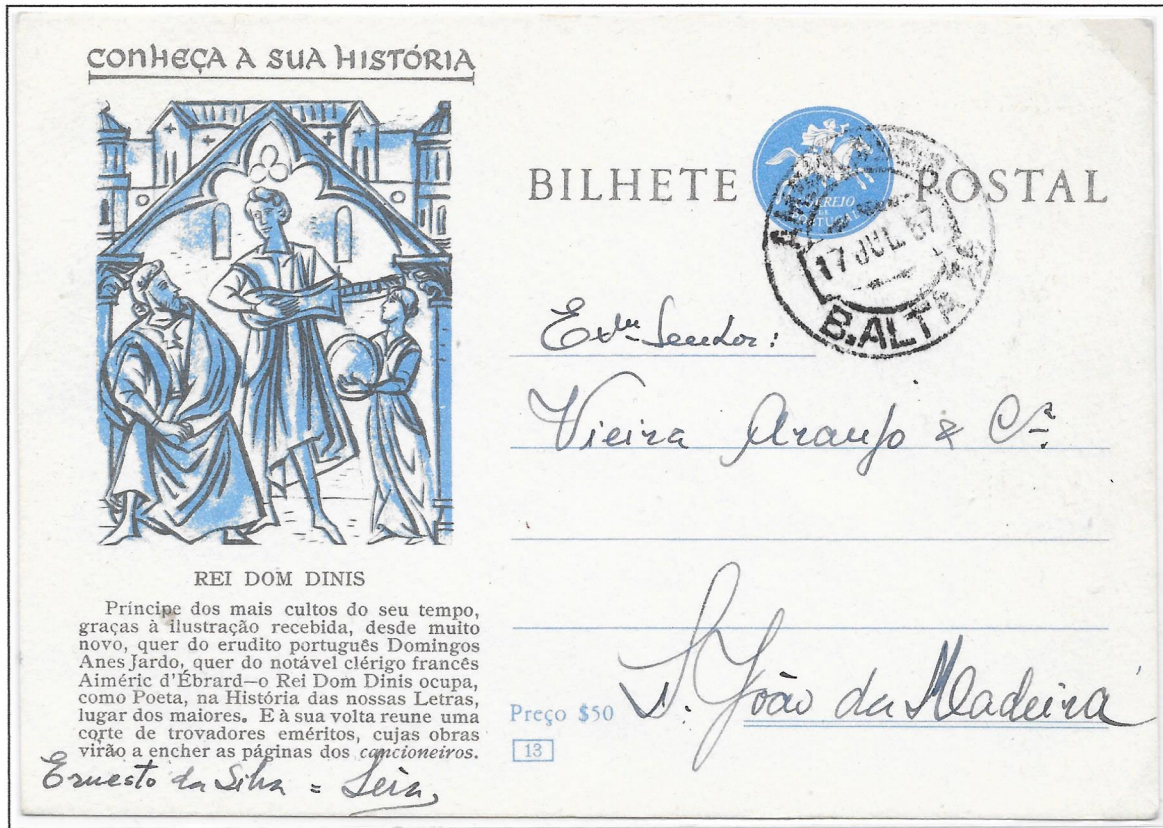 CONHEÇA A SUA HISTÓRIA
REI DOM DINIS
Príncipe dos mais cultos do seu tempo,
graças à ilustração recebida, desde muito
novo, quer do erudito português Domingos
Anes Jardo, quer do notável clérigo francês
Aiméric d'Ébrard—o Rei Dom Dinis ocupa,
como Poeta, na História das nossas Letras,
lugar dos maiores. E à sua volta reune uma
corte de trovadores eméritos, cujas obras
virão a encher as páginas dos cancioneiros.
Ernesto da Silva =
BILHETE POSTAL
CORREIO
DE
PORTUGAL
17 JUL. 67
B.ALTA
Senhor:
Vieira Araujo & Cª
S. João da Madeira
Preço $50
13